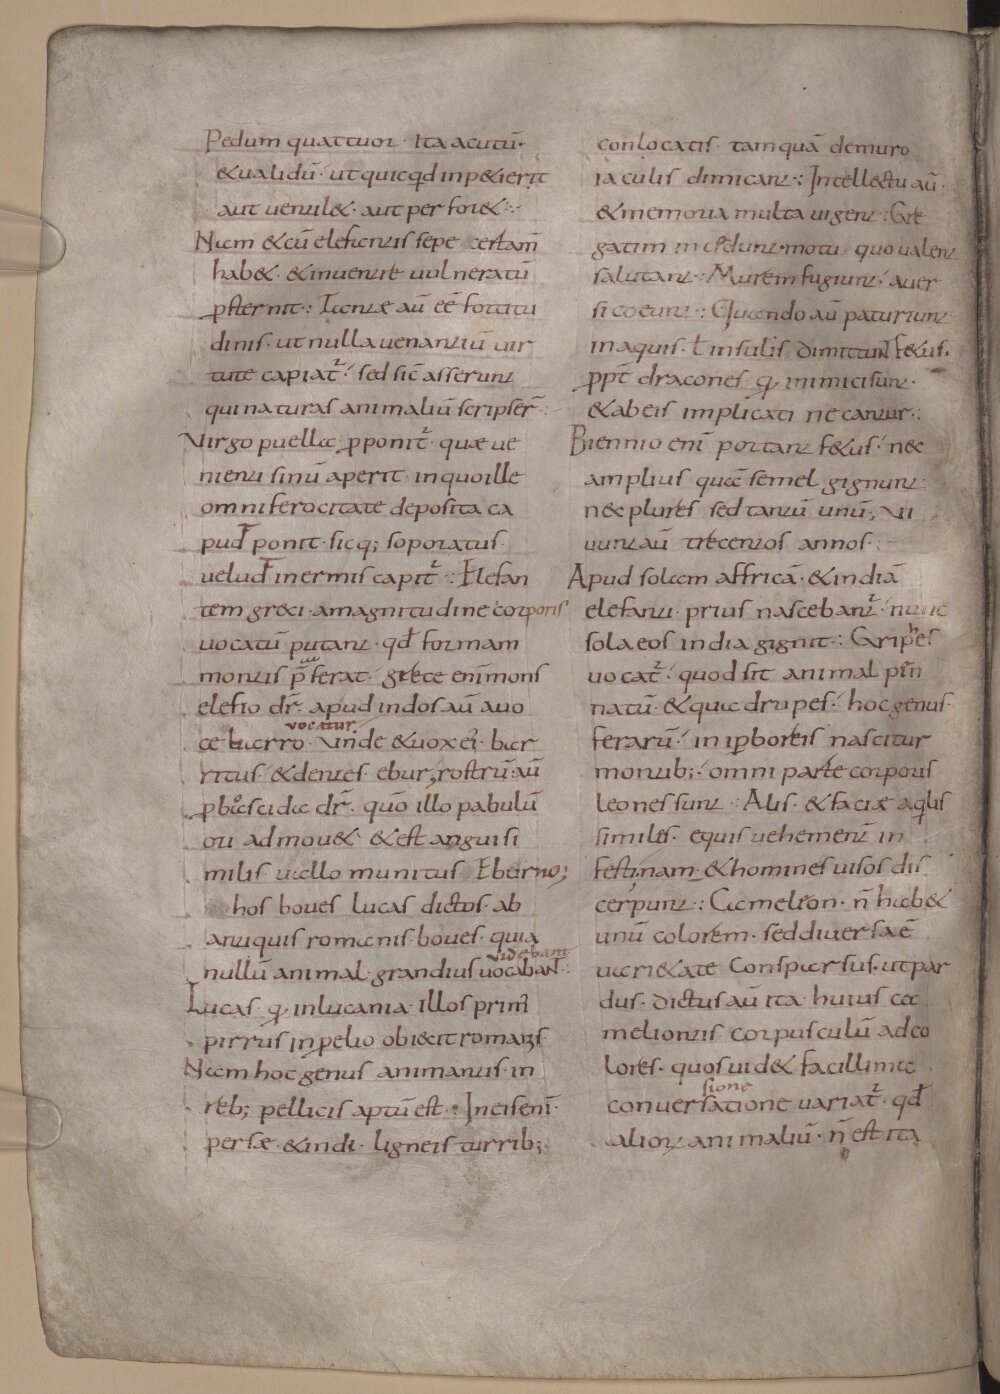 Pedum quattuor · Ita acutū ·
& ualidū · ut quicqđ inpe&ierit
aut uentil& · aut perfor&·:·
Nam &cū elefantis sepe certam̄
hab& · & inuentrē uulneratū
ꝓsternit·: Tantæ aū eē fortitu
dinis · ut nulla uenantiū uir
tute capiat᷑ · sed sic̄ asserunt
qui naturas animaliū scripser̄ ·:
Virgo puella ꝓponit᷑ · quæ ue
nienti sinū aperit · inquo ille
omni ferocitate deposita ca
pud ponit · sicq; soporatus ·
uelud inermis capit᷑ ·: Elefan
tem greci · amagnitudine corporis
uocatū putant · qđ formam
montis p̄ferat · grece enī mons
elefio dr̄ · apud indos aū auo
vocatur
ce barro · Vnde &uox ei᷑ · bar
ritus · &dentes ebur, rostrū aū
ꝓboscida dr̄ · quō illo pabulū
ori admou& · &est angui si
milis uallo munitus Eburno;
hos boues lucas dictos · ab
antiquis romanis · boues · quia
videbant
nullū animal · grandius uocabant ·:
Lucas · ꝙ inlucania · illos primꝰ
pirrus inp̱elio obiecit romanis ·
Nam hoc genus animantis · in
reb; pellicis aptū est ·: In eis enī ·
persæ · &indi · ligneis turrib;
conlocatis · tamquā demuro
iaculis dimicant ·: Intellectu aū ·
&memoria multa uigent ·: Gre
gatim incedunt · motu quo ualent
salutant ·: Murem fugiunt · auer
si coeunt ·: Quando aū paturiunt
inaquis · ł insulis dimittunt f&us ·
ꝓpt̄ dracones ꝙ inimici sunt ·
&abeis implicati necantur ·:
Biennio enī portant f&us · nec
amplius quā semel gignunt ·
nec plures sed tantū unū; Vi
uunt aū trecentos annos ·:
Apud solam affricā · &indiā
elefanti · prius nascebant᷑ · nunc
sola eos india gignit ·: Gripes
h
uocat᷑ · quod sit animal pēn
natū · &quadrupes · hoc genus ·
ferarū · in iꝑboreis nascitur
montib; · omni parte corporis
leones sunt ·: Alis · &faciæ aqlis
similes · equis uehement̄ in
festi,nam &homines uisos dis
cerpunt ·: Camelion · n̄ hab&
unū colorem · sed diuersa ē
uari&ate Conspersus · utpar
dus · dictus aū ita · huius ca
melionis corpusculū adco
lores · quos uid& facillima
sione
conuersatione uariat᷑ · qđ
alioꝝ animaliū · n̄ est ita